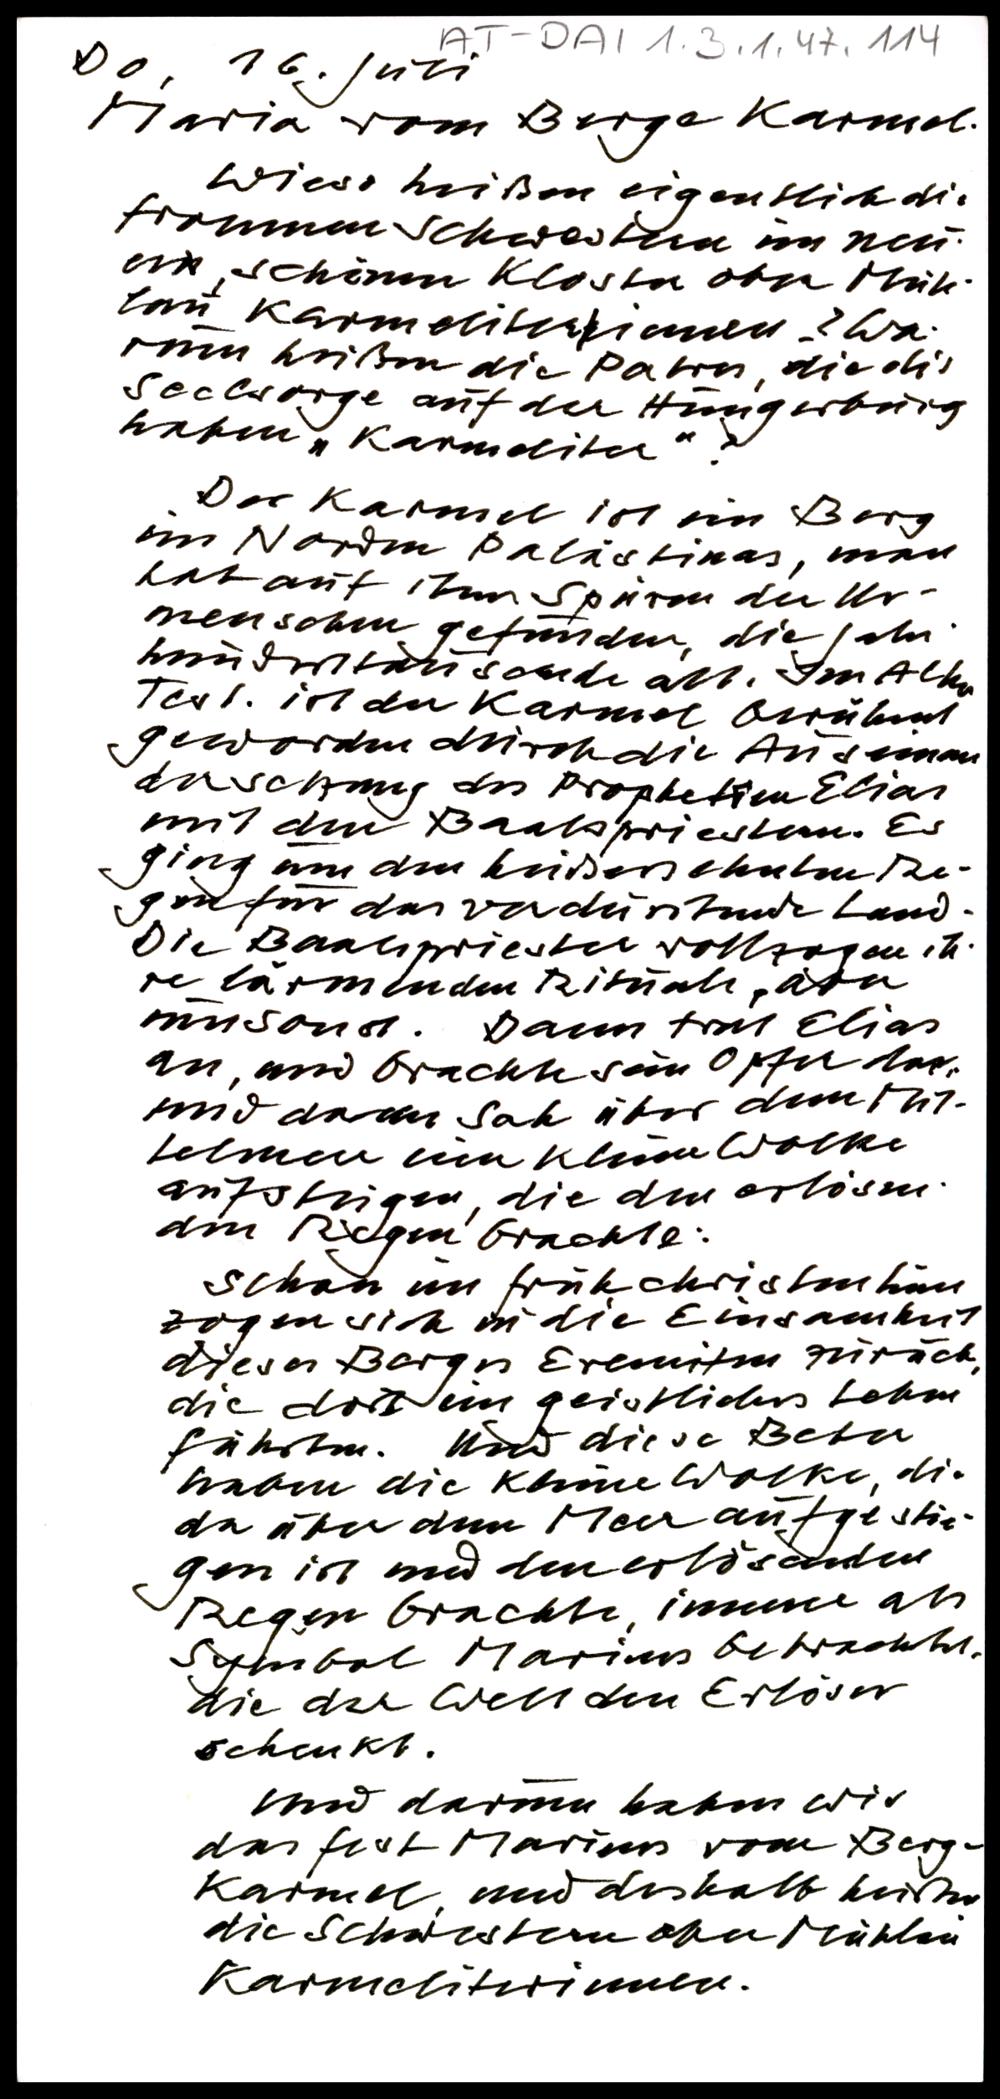 AT-DAI 1.3.1.47.114
Do, 16. Juli
Maria vom Berge Karmel.
Wieso heißen eigentlich die
frommen Schwestern im neu-
en, schönen Kloster ober Müh-
lau Karmeliterinnen? Wa-
rum heißen die Patres, die die
Seelsorge auf der Hungerburg
haben „Karmeliter"?
Der Karmel ist ein Berg
im Norden Palästinas, man
hat auf ihm Spuren der Ur-
menschen gefunden, die jahr-
hunderttausende alt. Im Alten
Test. ist der Karmel berühmt
geworden durch die Ausseinan
dersetzung des Propheten Elias
mit den Baalspriestern. Es
ging um den heißersehnten Re-
gen für das verdürstende Land.
Die Baalspriester vollzogen ih-
re lärmenden Rituale, aber
umsonst. Dann trat Elias
an, und brachte sein Opfer dar,
und dann sah über dem Mit-
telmeer eine kleine Wolke
aufsteigen, die den erlösen-
den Regen brachte.
Schon im frühchristentum
zogen sich in die Einsamkeit
dieses Berges Eremiten zurück,
die dort ein geistliches Leben
führten. Und diese Beter
haben die kleine Wolke, die
da über dem Meer aufgestie-
gen ist und den erlösenden
Regen brachte, immer als
Symbol Mariens betrachtet.
die der Welt den Erlöser
schenkt.
Und darum haben wir
das fest Mariens vom Berg-
Karmel, und deshalb heißen
die Schwestern ober Mühlau
Karmeliterinnen.